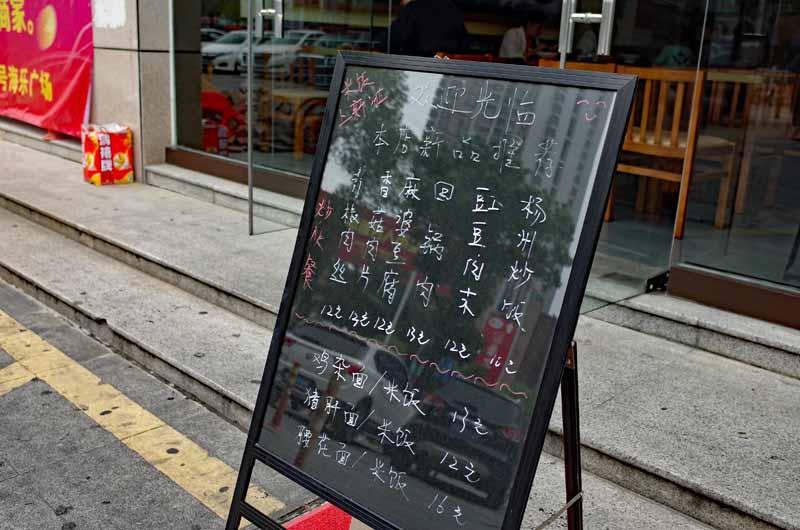 商家。
号海乐广场
欢迎光临
本店新品推荐
炒饭套餐
青椒肉丝 12元
香菇肉片 13元
麻婆豆腐 12元
回锅肉 13元
豇豆肉末 12元
杨州炒饭 10元
鸡杂面/米饭 13元
猪肝面/米饭 12元
腰花面/米饭 16元